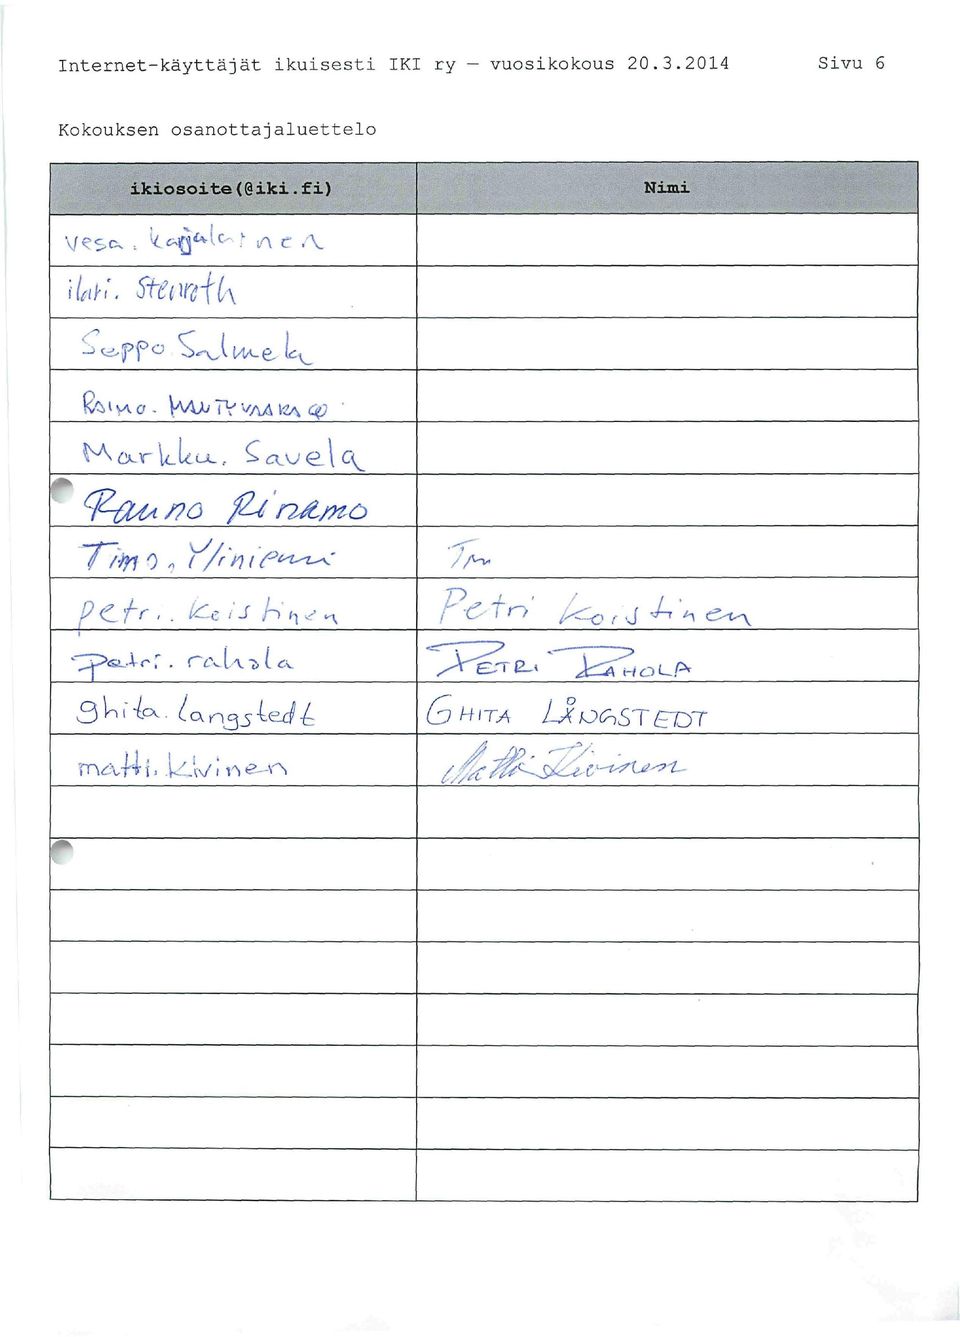 Internet-käyttäjät ikuisesti IKI ry — vuosikokous 20.3.2014 Sivu 6
Kokouksen osanottajaluettelo
ikiosoite(@iki.fi) Nimi
vesa. karjalainen
ilari. Stenroth
Seppo. Salmela
Raimo.
Markku. Savela
Rauno Rinamo
Timo. Yliniemi
petri. koistinen Petri Koistinen
petri. rahola PETRI RAHOLA
ghita. langstedt GHITA LÅNGSTEDT
matti. kivinen Matti Kivinen